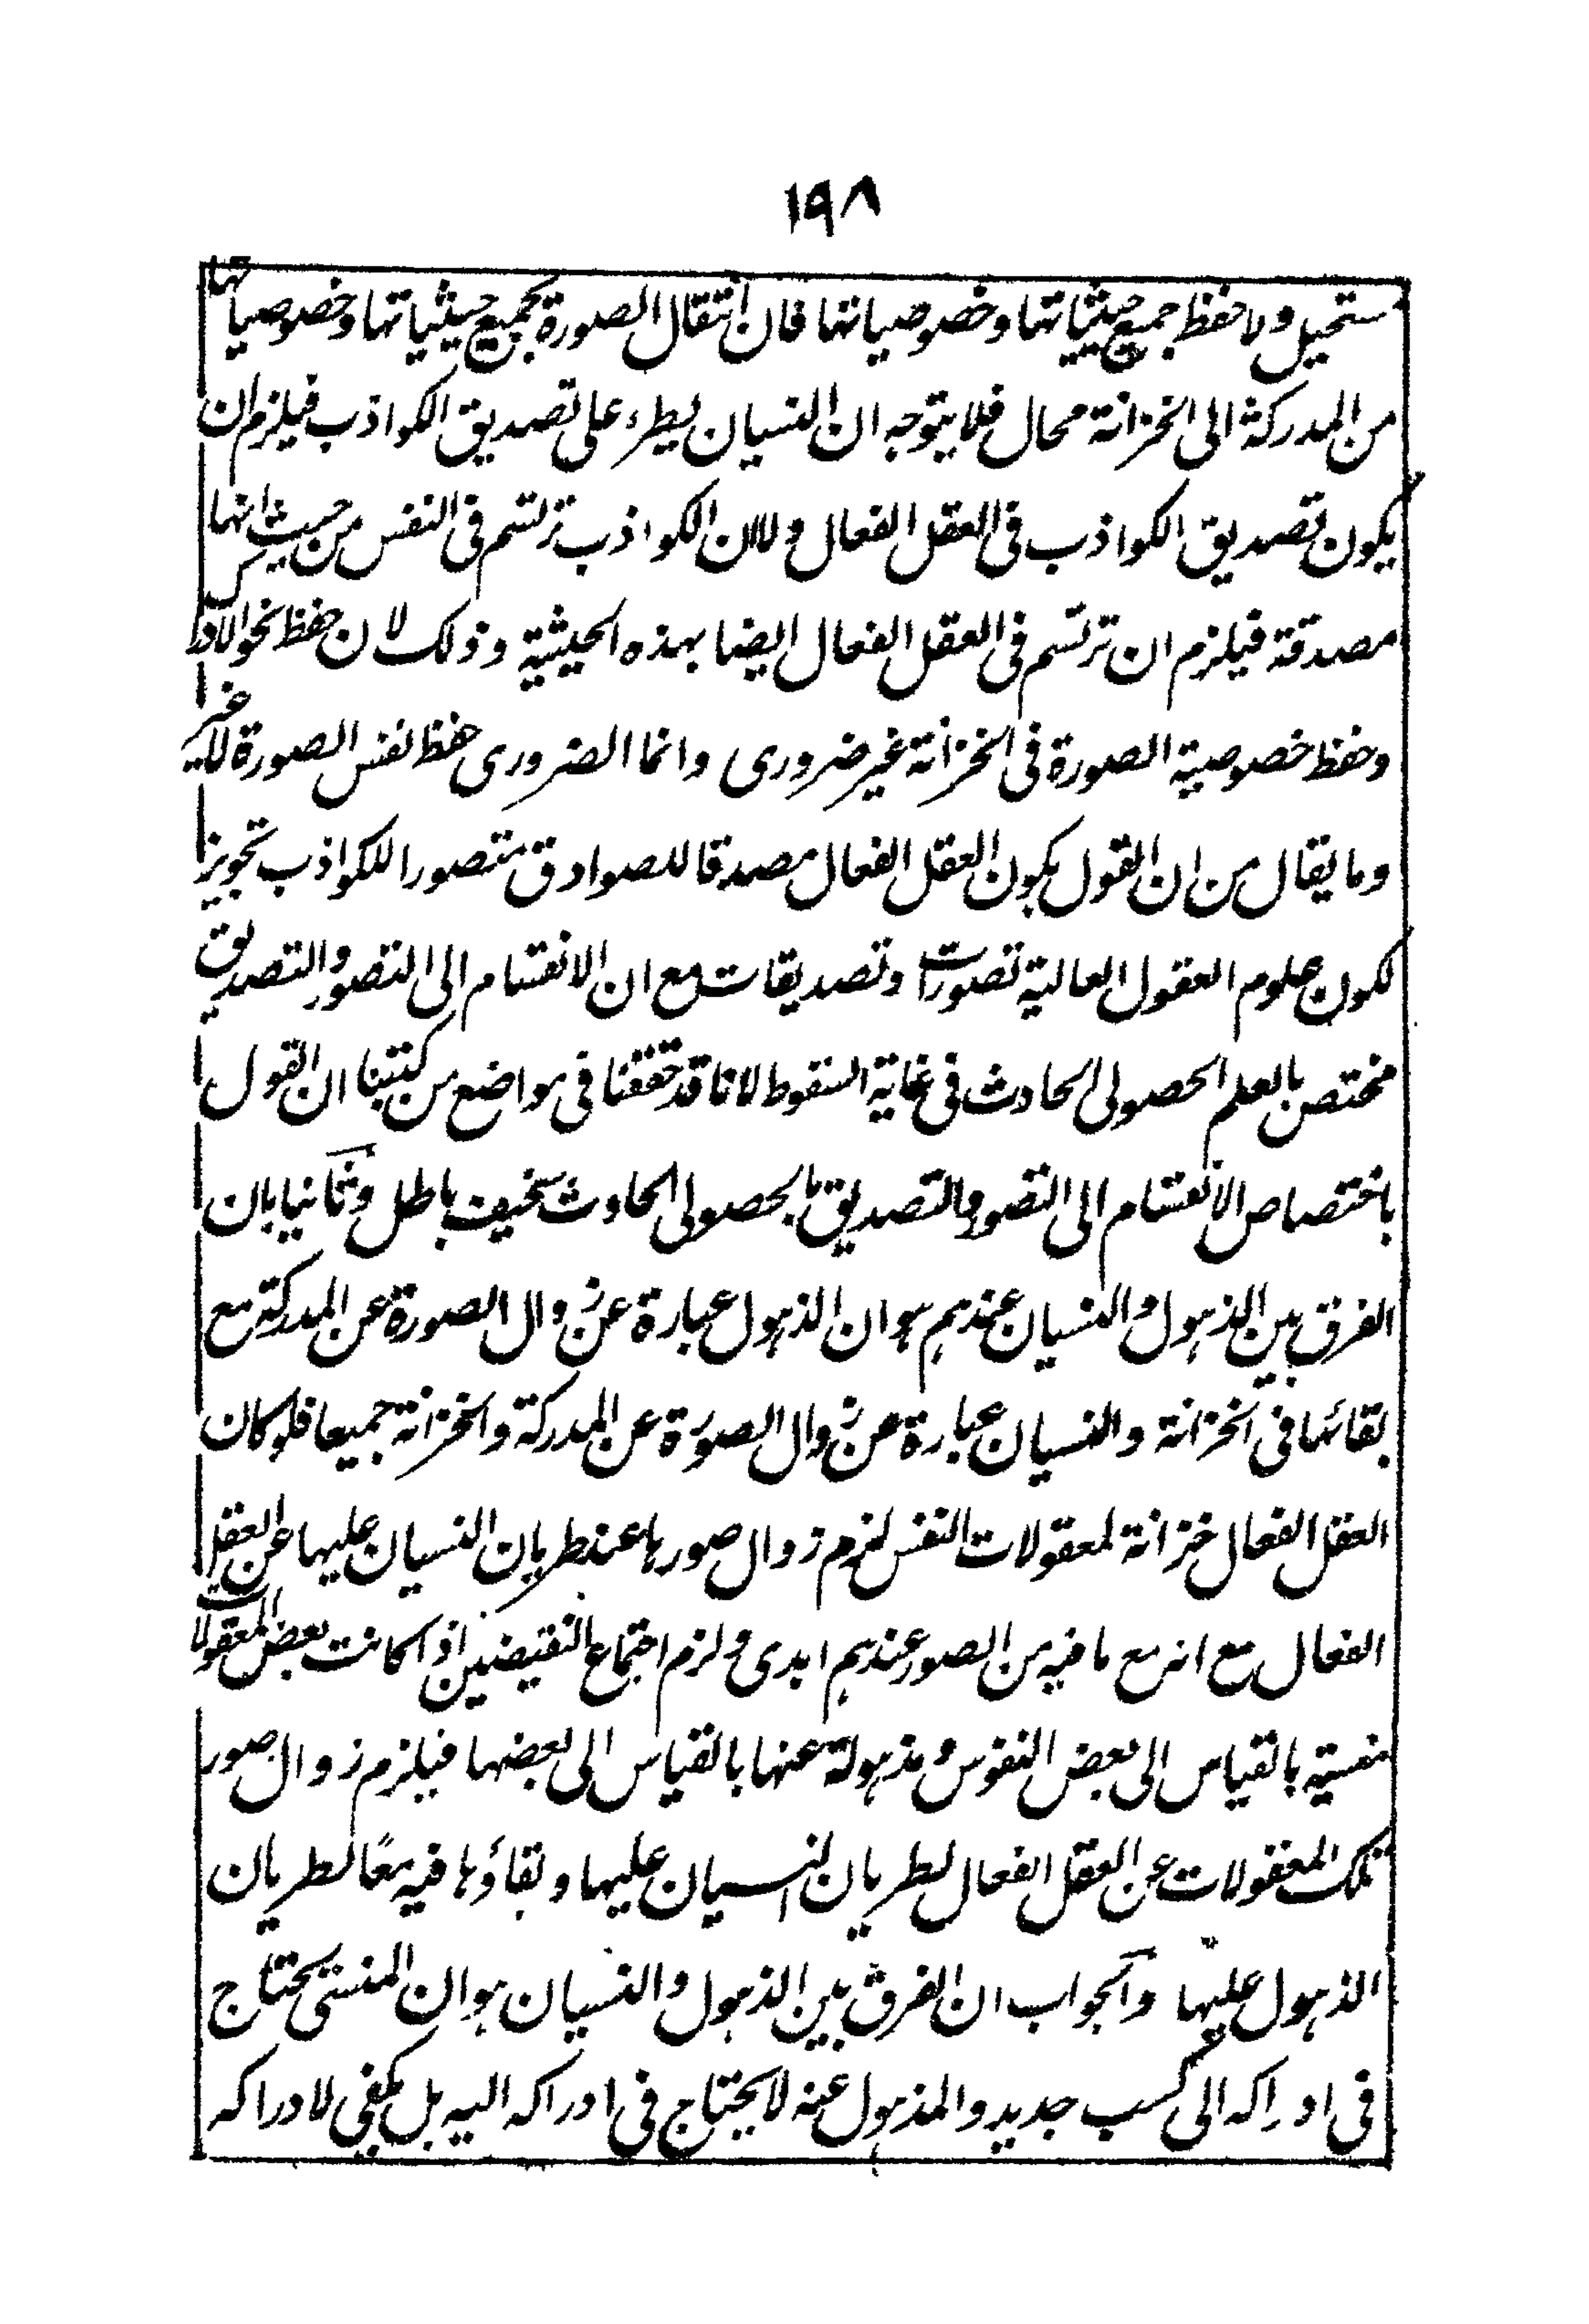 ١٩٨
ستحيل ولا حفظ جميع حيثياتها وخصوصياتها فان انتقال الصورة بجميع حيثياتها وخصوصياتها
من المدركة الى الخزانة محال فلا يتوجه ان النسيان يطرء على تصديق الكواذب فيلزم ان
يكون تصديق الكواذب فى العقل الفعال ولا ان الكواذب ترتسم فى النفس من حيث انها
مصدقة فيلزم ان ترتسم فى العقل الفعال ايضا بهذه الحيثية وذلك لان حفظ نحو الادراك
وحفظ خصوصية الصورة فى الخزانة غير ضرورى وانما الضرورى حفظ نفس الصورة لا غير
وما يقال من ان القول بكون العقل الفعال مصدقا للصوادق متصورا للكواذب تجويز
لكون علوم العقول العالية تصورات وتصديقات مع ان الانقسام الى التصور والتصديق
مختص بالعلم الحصولى الحادث فى غاية السقوط لانا قد حققنا فى مواضع من كتبنا ان القول
باختصاص الانقسام الى التصور والتصديق بالحصولى الحادث سخيف باطل وثانيا بان
الفرق بين الذهول والنسيان عندهم هو ان الذهول عبارة عن زوال الصورة عن المدركة مع
بقائها فى الخزانة والنسيان عبارة عن زوال الصورة عن المدركة والخزانة جميعا فلو كان
العقل الفعال خزانة لمعقولات النفس لزم زوال صورها عند طريان النسيان عليها عن العقل
الفعال مع انه مع ما فيه من الصور عندهم ابدى ولزم اجتماع النقيضين اذا كانت بعض المعقولات
منسية بالقياس الى بعض النفوس ومذهولة عنها بالقياس الى بعضها فيلزم زوال صور
تلك المعقولات عن العقل الفعال لطريان النسيان عليها وبقاؤها فيه معًا لطريان
الذهول عليها والجواب ان الفرق بين الذهول والنسيان هو ان المنسى يحتاج
فى ادراكه الى كسب جديد والمذهول عنه لا يحتاج فى ادراكه اليه بل يكفى لادراكه